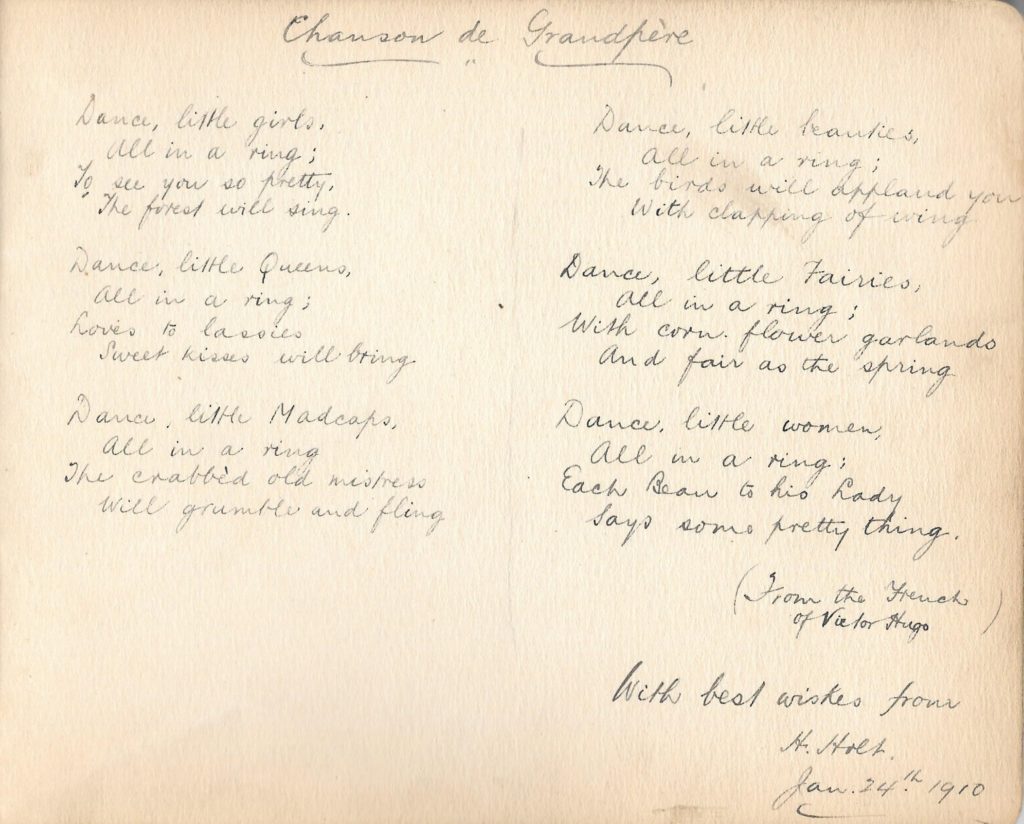 Chanson de Grandpère
Dance, little girls,
All in a ring;
To see you so pretty,
The forest will sing.
Dance, little Queens,
All in a ring;
Loves to lassies
Sweet kisses will bring.
Dance, little Madcaps,
All in a ring
The crabbèd old mistress
Will grumble and fling
Dance, little beauties,
All in a ring;
The birds will applaud you
With clapping of wing
Dance, little Fairies,
All in a ring;
With corn-flower garlands
And fair as the spring
Dance, little women,
All in a ring;
Each Beau to his Lady
Says some pretty thing.
(From the French
of Victor Hugo)
With best wishes from
H. Holt.
Jan. 24th. 1910